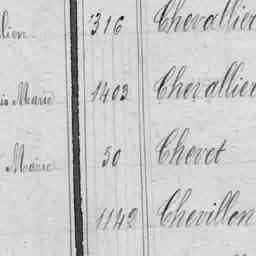 lien 316 Chevallier
is Marie 1403 Chevallier
Marie 50 Chevet
1142 Chevillon